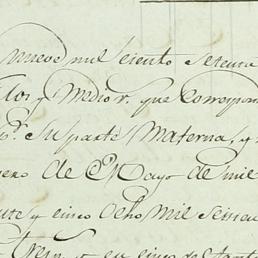 nueve mil ciento setenta
llos y Medio r. que Correspon
p.r su parte Materna, y
nero de Mayo de mil
nte y cinco Ocho mil Seisci
Trein y en cinco de